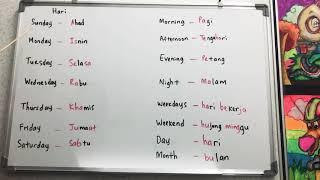 Hari
Sunday - Ahad
Monday - Isnin
Tuesday - Selasa
Wednesday - Rabu
Thursday - Khamis
Friday - Jumaat
Saturday - Sabtu
Morning - Pagi
Afternoon - Tengahari
Evening - Petang
Night - Malam
Weekdays - hari bekerja
Weekend - hujong minggu
Day - hari
Month - bulan